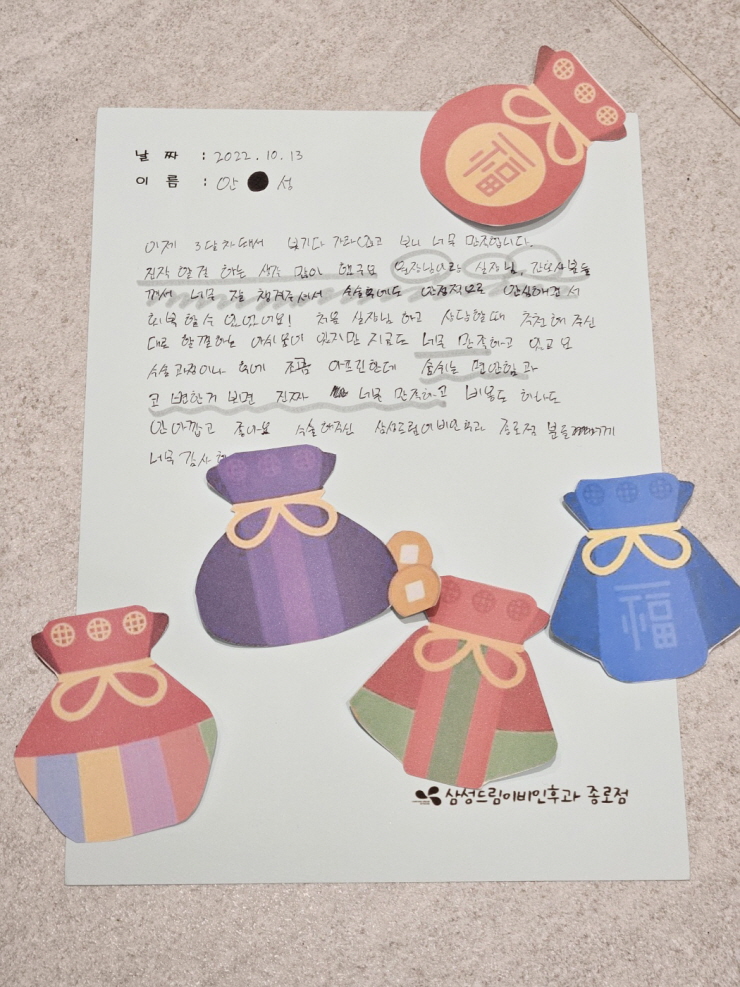 날 짜 : 2022.10.13
이 름 : 안 성
이제 3달차돼서 붓기다 가라앉고 보니 너무 만족합니다.
진작 할걸 하는 생각 많이 했구요 원장님이랑 실장님, 간호사분들
께서 너무 잘 챙겨주셔서 수술후에도 안정적으로 안심해면서
회복 할수 있었어요! 처음 실장님 하고 상담할때 추천해주신
대로 할걸하는 아쉬움이 있지만 지금도 너무 만족하고 있고요
수술과정이나 후에 조금 아프긴한데 숨쉬는 편안함과
코 변한거 보면 진짜 너무 만족하고 비용도 하나도
안아깝고 좋아요 수술해주신 삼성드림이비인후과 종로점 분들에게
너무 감사
福
福
삼성드림이비인후과 종로점